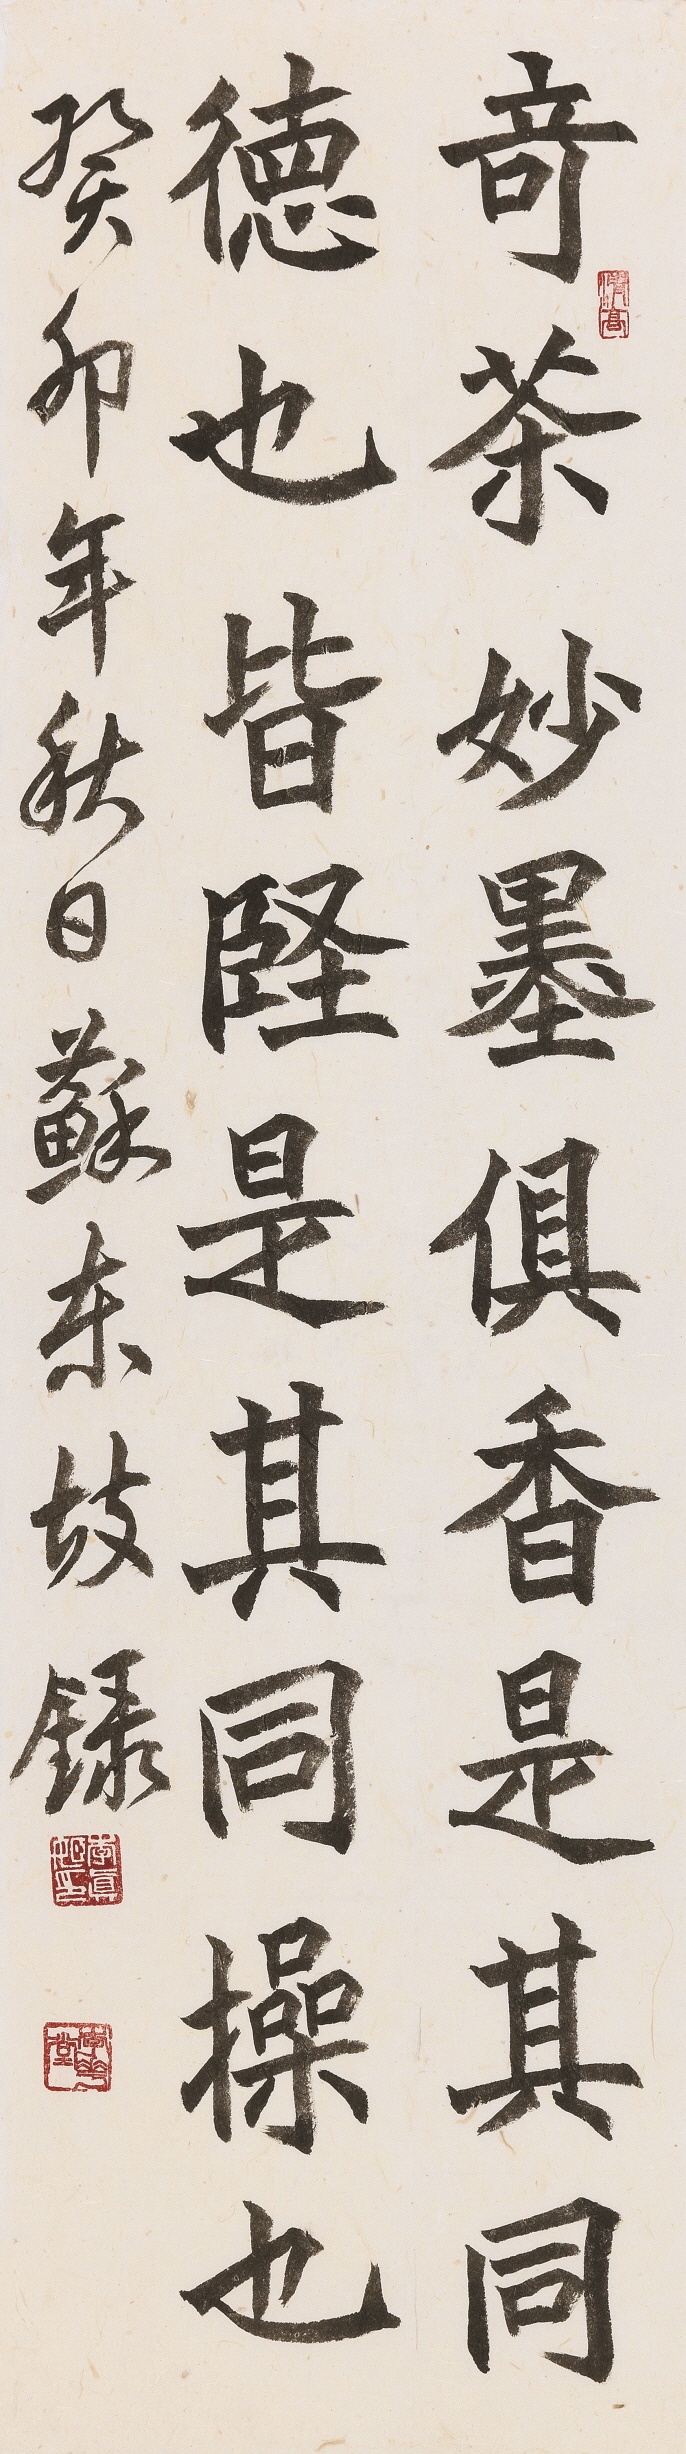 奇茶妙墨俱香是其同
德也皆堅是其同操也
癸卯年秋日蘇東坡錄